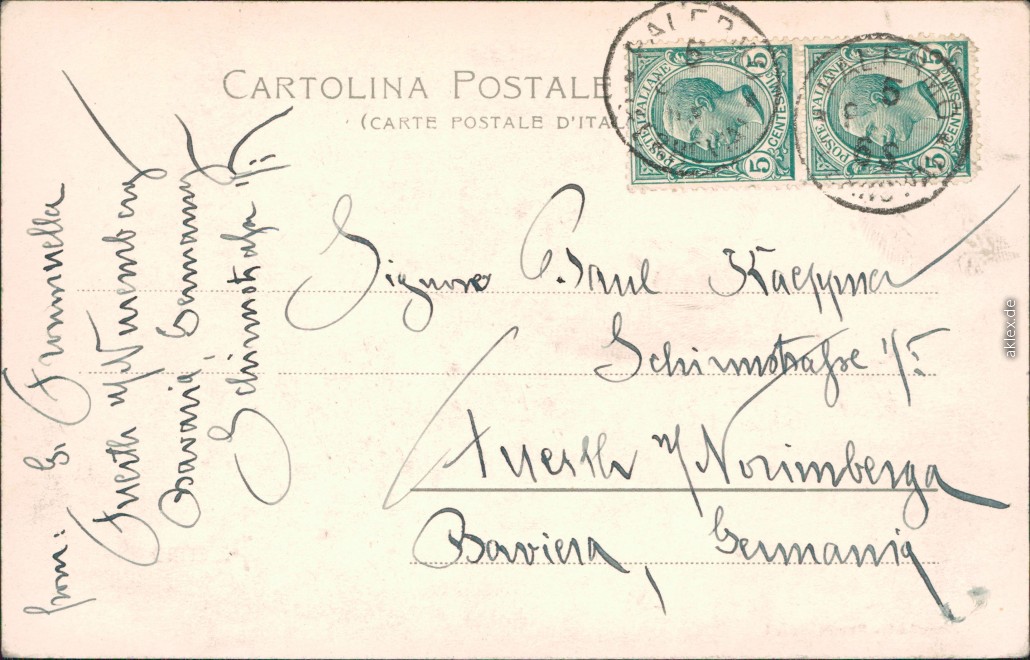 CARTOLINA POSTALE
(CARTE POSTALE D'ITA
PALERMO
POSTE ITALIANE
5 CENTESIMI 5
POSTE ITALIANE
5 CENTESIMI 5
Signore Paul Kaeppner
Schirmstraße
Fuerth n/ Norimberga
Baviera, Germania
from:
Fuerth n/ Nuremberg
Bavaria, Germany
Schirmstraße
aklex.de